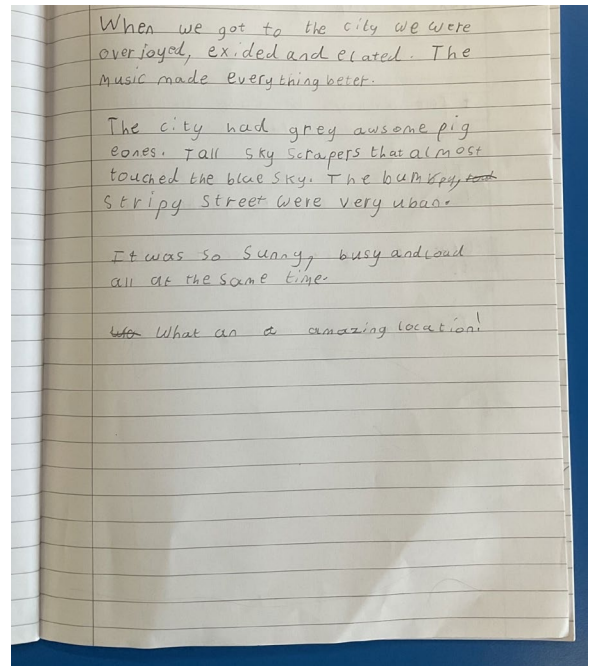 When we got to the city we were
overjoyed, exided and elated. The
music made everything beter.
The city had grey awsome pig
eones. Tall sky scrapers that almost
touched the blue sky. The bum
stripy street were very uban.
It was so sunny, busy and loud
all at the same time.
What an a amazing location!